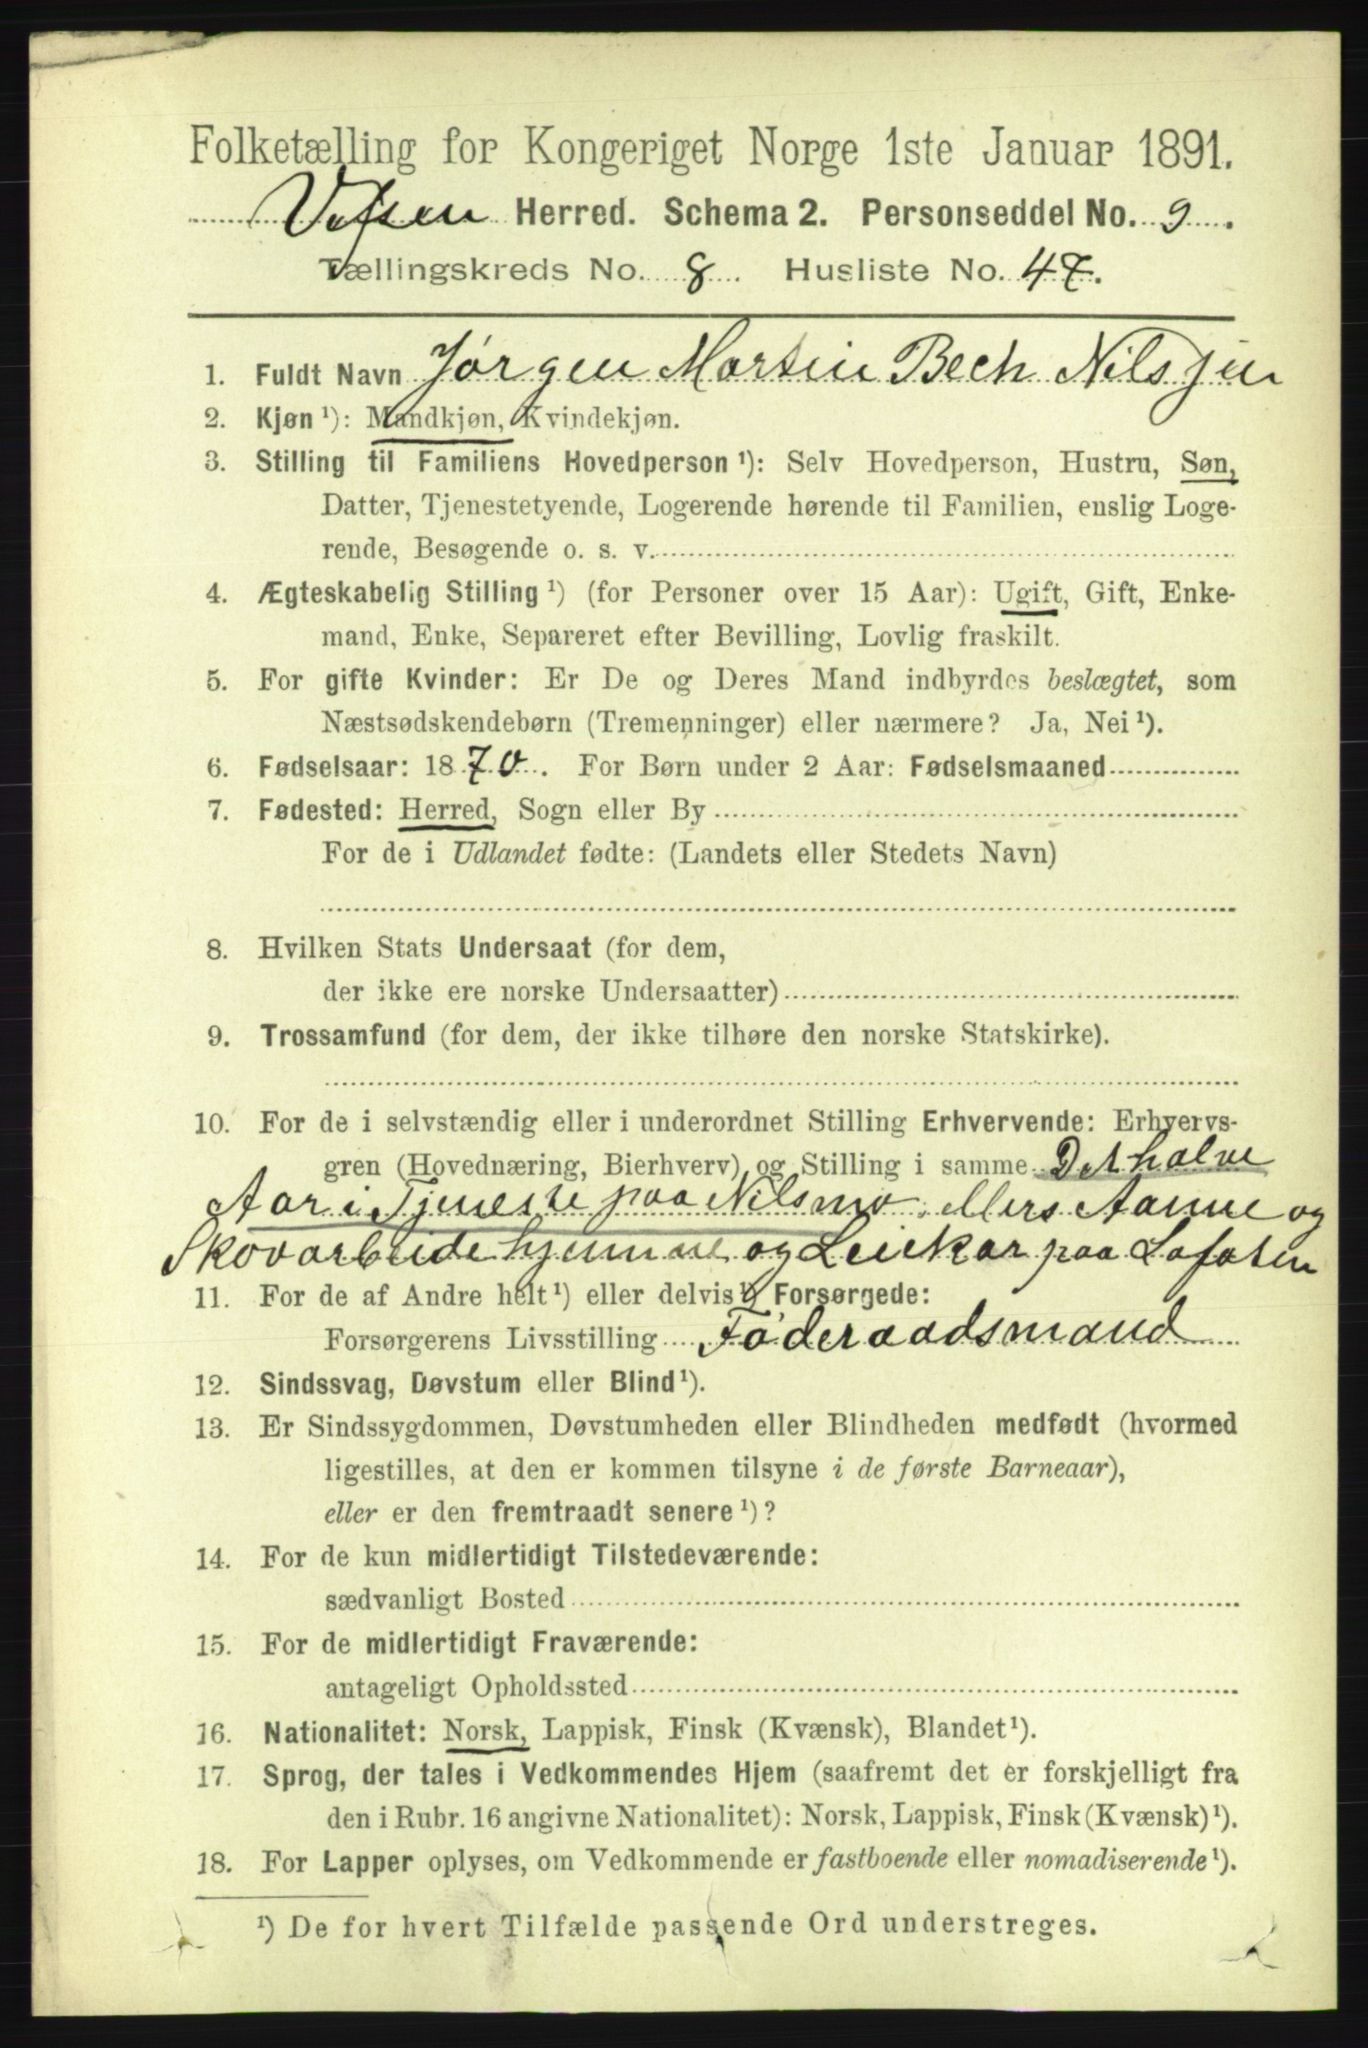 Folketælling for Kongeriget Norge 1ste Januar 1891.
Vefsen Herred. Schema 2. Personseddel No. 9.
Tællingskreds No. 8. Husliste No. 47.
1. Fuldt Navn Jørgen Martin Bech Nilsjen
2. Kjøn ¹): Mandkjøn, Kvindekjøn.
3. Stilling til Familiens Hovedperson ¹): Selv Hovedperson, Hustru, Søn,
Datter, Tjenestetyende, Logerende hørende til Familien, enslig Loge-
rende, Besøgende o. s. v.
4. Ægteskabelig Stilling ¹) (for Personer over 15 Aar): Ugift, Gift, Enke-
mand, Enke, Separeret efter Bevilling, Lovlig fraskilt.
5. For gifte Kvinder: Er De og Deres Mand indbyrdes beslægtet, som
Næstsødskendebørn (Tremenninger) eller nærmere? Ja, Nei ¹).
6. Fødselsaar: 1870. For Børn under 2 Aar: Fødselsmaaned
7. Fødested: Herred, Sogn eller By
For de i Udlandet fødte: (Landets eller Stedets Navn)
8. Hvilken Stats Undersaat (for dem,
der ikke ere norske Undersaatter)
9. Trossamfund (for dem, der ikke tilhøre den norske Statskirke).
10. For de i selvstændig eller i underordnet Stilling Erhvervende: Erhvervs-
gren (Hovednæring, Bierhverv) og Stilling i samme Det halve
Aar i Tjeneste paa Nilsmo. Aanne og
Skovarbeide hjemme og Leiekar paa Lofoten
11. For de af Andre helt ¹) eller delvis ¹) Forsørgede:
Forsørgerens Livsstilling Föderaadsmand
12. Sindssvag, Døvstum eller Blind ¹).
13. Er Sindssygdommen, Døvstumheden eller Blindheden medfødt (hvormed
ligestilles, at den er kommen tilsyne i de første Barneaar),
eller er den fremtraadt senere ¹)?
14. For de kun midlertidigt Tilstedeværende:
sædvanligt Bosted
15. For de midlertidigt Fraværende:
antageligt Opholdssted
16. Nationalitet: Norsk, Lappisk, Finsk (Kvænsk), Blandet ¹).
17. Sprog, der tales i Vedkommendes Hjem (saafremt det er forskjelligt fra
den i Rubr. 16 angivne Nationalitet): Norsk, Lappisk, Finsk (Kvænsk) ¹).
18. For Lapper oplyses, om Vedkommende er fastboende eller nomadiserende ¹).
¹) De for hvert Tilfælde passende Ord understreges.